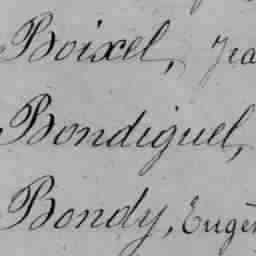 Boixel, Jea
Bondiguel,
Bondy, Eugèn